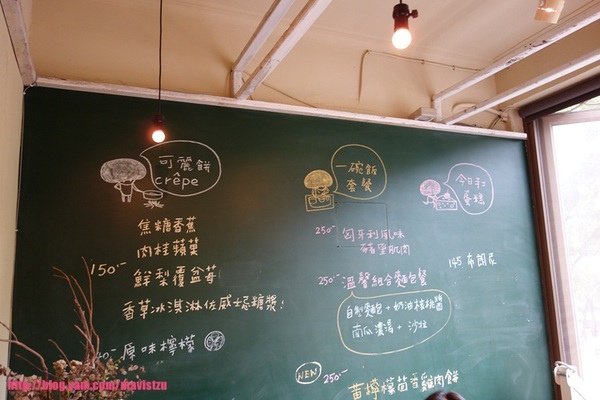 可麗餅
crêpe
焦糖香蕉
肉桂蘋菓
150-
鮮梨覆盆莓
香草冰淇淋佐威士忌糖漿!
原味檸檬
一碗飯
套餐
250- 匈牙利風味
豬里肌肉
250- 溫馨組合麵包餐
自製麵包 + 奶油核桃醬
南瓜濃湯 + 沙拉
NEW 250-
黃檸檬茴香雞肉餅
今日手工
蛋糕
145 布朗尼
http://blog.yam.com/mavistzu